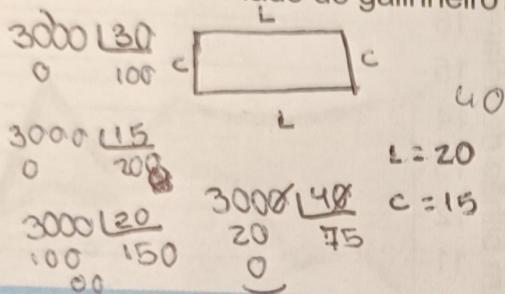 galinheiro
3000 30
0 100
L
C C
L
40
3000 15
0 200
L = 20
C = 15
3000 20
100 150
00
3000 40
20 75
0